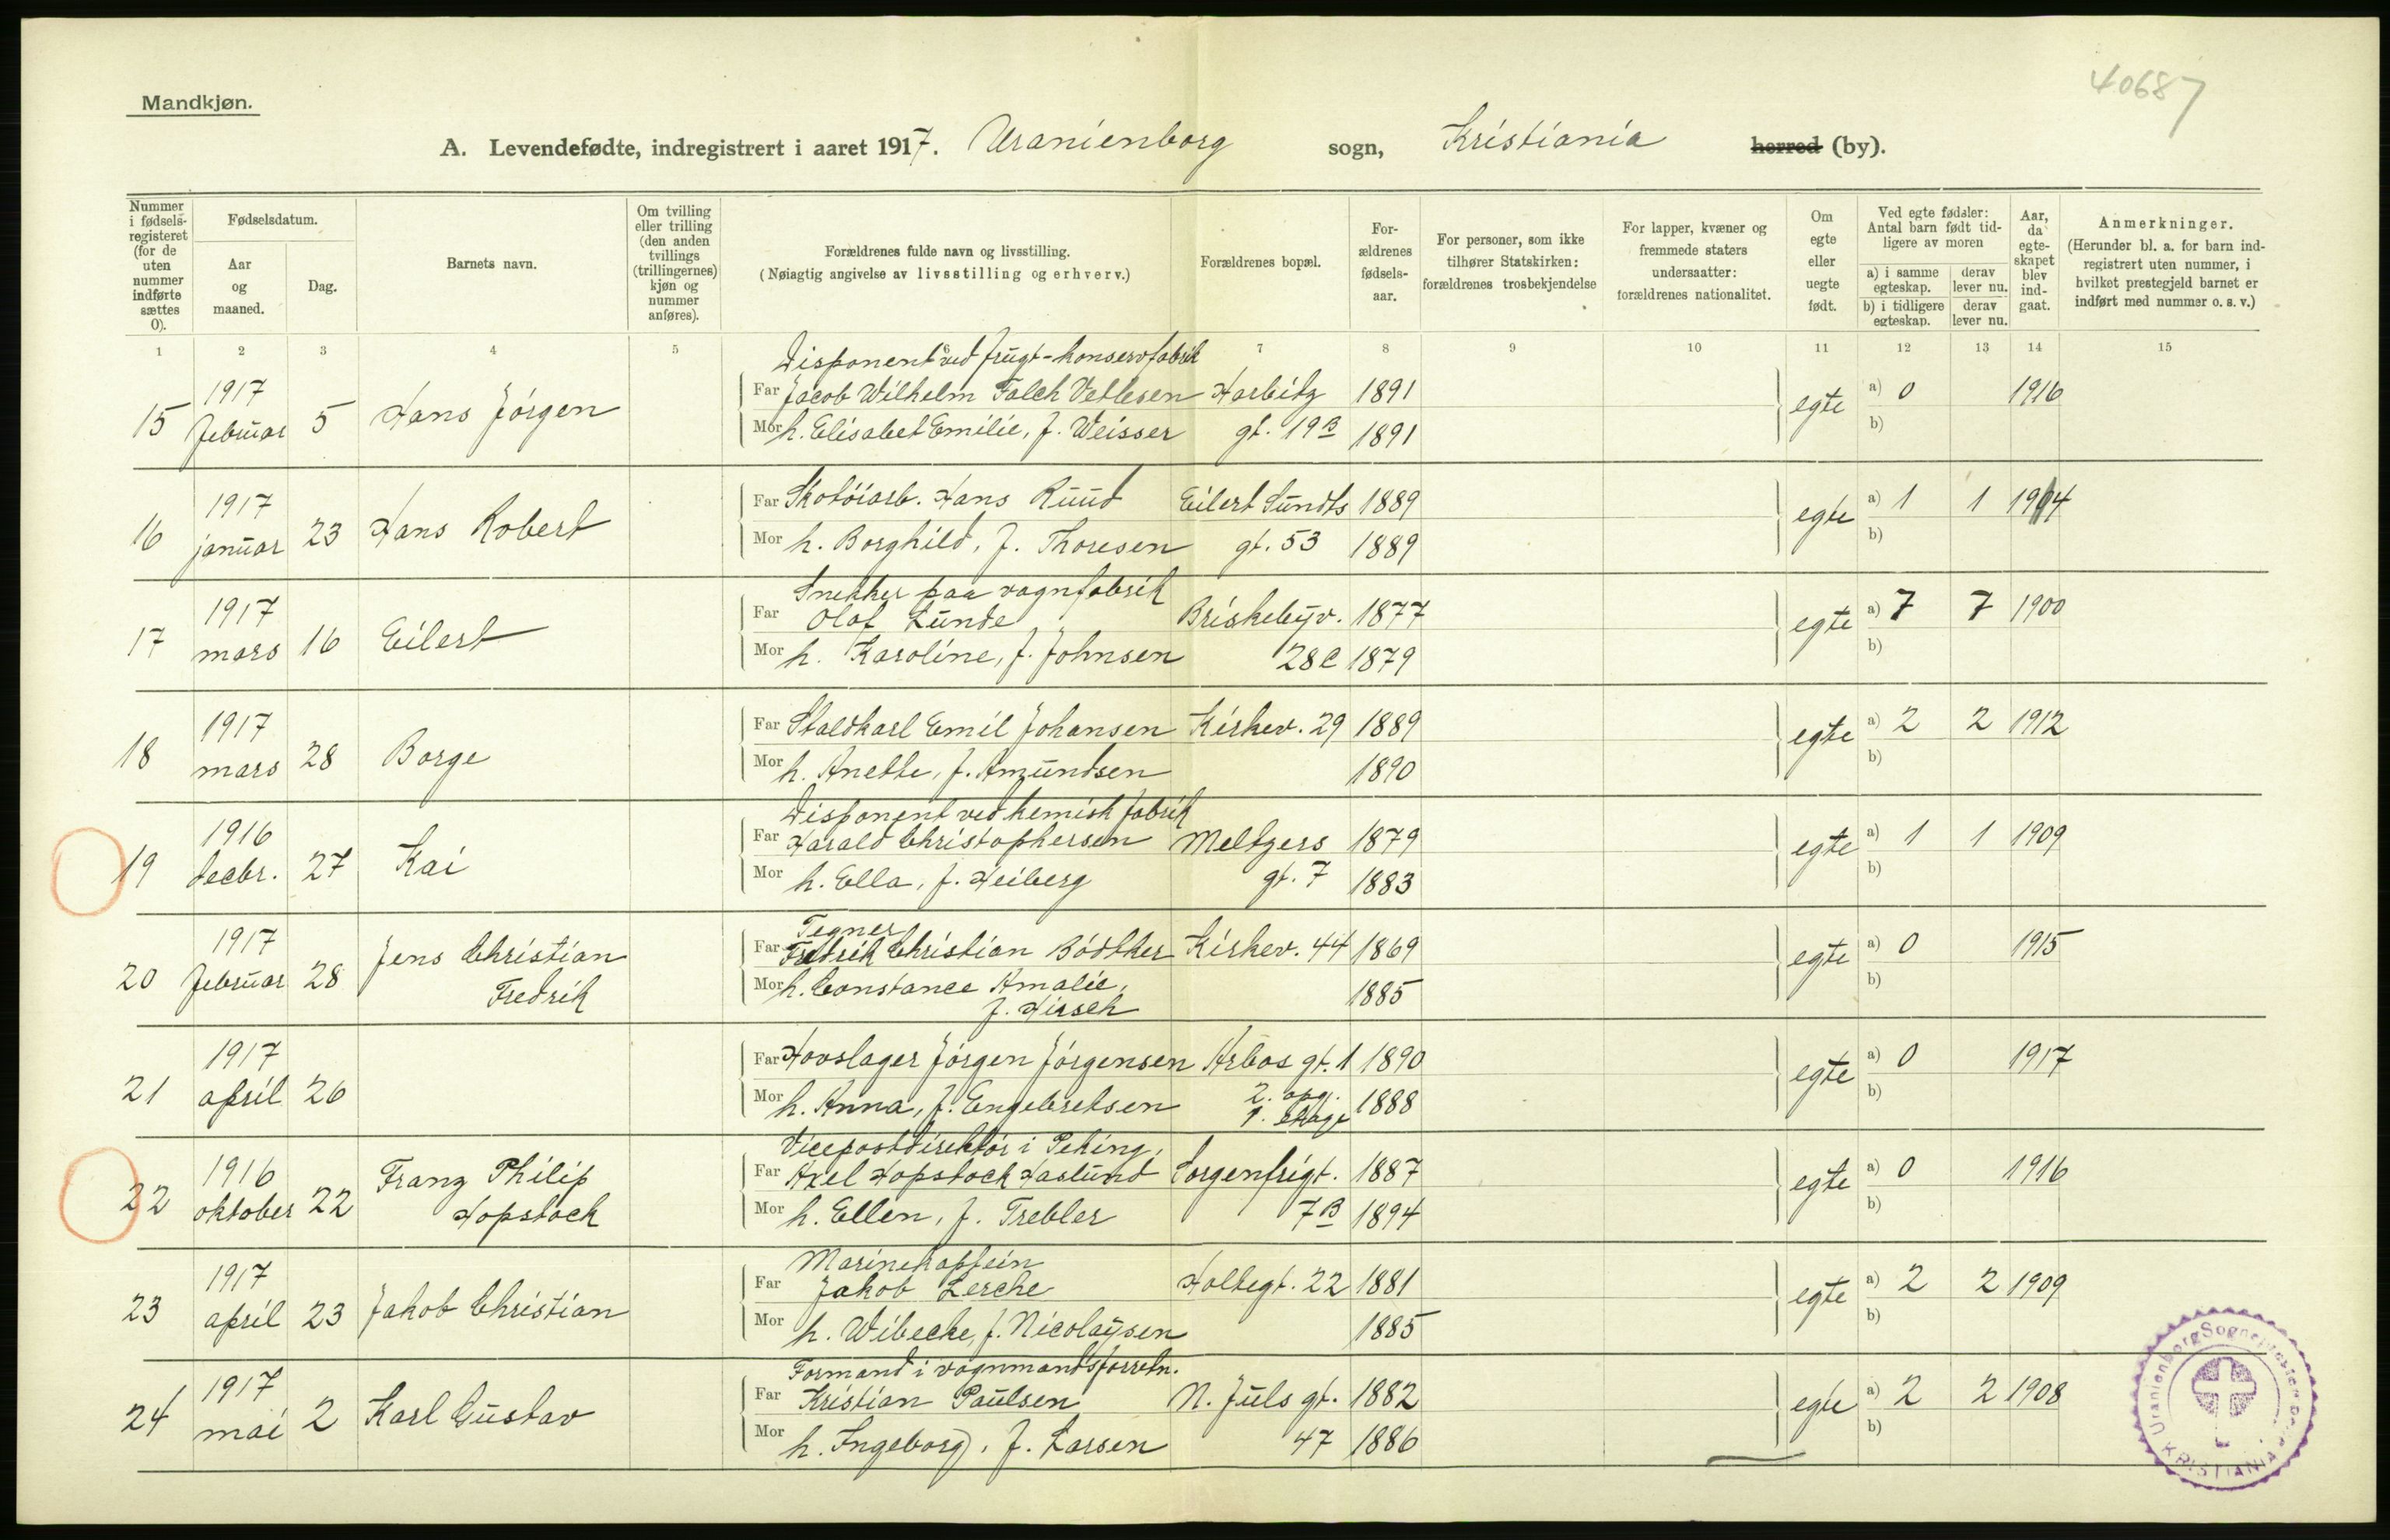 40687
Mandkjøn.
A. Levendefødte, indregistrert i aaret 1917. Uranienborg sogn, Kristiania herred (by).
Nummer i fødsels-registeret (for de uten nummer indførte sættes 0).
Fødselsdatum.
Aar og maaned.
Dag.
Barnets navn.
Om tvilling eller trilling (den anden tvillings (trillingernes) kjøn og nummer anføres).
Forældrenes fulde navn og livsstilling.
(Nøiagtig angivelse av livsstilling og erhverv.)
Forældrenes bopæl.
For-ældrenes fødsels-aar.
For personer, som ikke tilhører Statskirken: forældrenes trosbekjendelse
For lapper, kvæner og fremmede staters undersaatter: forældrenes nationalitet.
Om egte eller uegte født.
Ved egte fødsler: Antal barn født tid-ligere av moren
a) i samme egteskap. derav lever nu.
b) i tidligere egteskap. derav lever nu.
Aar, da egte-skapet blev ind-gaat.
Anmerkninger.
(Herunder bl. a. for barn ind-registrert uten nummer, i hvilket prestegjeld barnet er indført med nummer o. s. v.)
1 2 3 4 5 6 7 8 9 10 11 12 13 14 15
Disponent ved frugt-konservfabrik
15 1917 februar 5 Hans Jörgen Far Jacob Wilhelm Falch Vetlesen Harbitz 1891 egte a) 0 1916
Mor h. Elisabet Emilie, f. Weisser gt. 19B 1891 b)
16 1917 januar 23 Hans Robert Far Skotöiarb. Hans Ruud Eilert Sundts 1889 egte a) 1 1 1914
Mor h. Borghild, f. Thoresen gt. 53 1889 b)
Snekker paa vognfabrik
17 1917 mars 16 Eilert Far Olaf Lunde Briskebyv. 1877 egte a) 7 7 1900
Mor h. Karoline, f. Johnsen 28C 1879 b)
18 1917 mars 28 Borge Far Staldkarl Emil Johansen Kirkev. 29 1889 egte a) 2 2 1912
Mor h. Anette, f. Amundsen 1890 b)
Disponent ved kemisk fabrik
19 1916 decbr. 27 Kai Far Harald Christophersen Meltzers 1879 egte a) 1 1 1909
Mor h. Ella, f. Heiberg gt. 7 1883 b)
Tegner
20 1917 februar 28 Jens Christian Fredrik Far Fredrik Christian Bödtker Kirkev. 44 1869 egte a) 0 1915
Mor h. Constance Amalie, 1885 b)
f. Hirsch
21 1917 april 26 Far Hovslager Jörgen Jörgensen Arbos gt. 1 1890 egte a) 0 1917
Mor h. Anna, f. Engebretsen 2. opg. 1. etage 1888 b)
Vicepostdirektör i Peking,
22 1916 oktober 22 Franz Philip Hopstock Far Axel Hopstock Haslund Sorgenfrigt. 1887 egte a) 0 1916
Mor h. Ellen, f. Trebler 7B 1894 b)
Marinekaptein
23 1917 april 23 Jakob Christian Far Jakob Lerche Holtegt. 22 1881 egte a) 2 2 1909
Mor h. Wibecke, f. Nicolaysen 1885 b)
Formand i vognmandsforretn.
24 1917 mai 2 Karl Gustav Far Kristian Paulsen N. Juls gt. 1882 egte a) 2 2 1908
Mor h. Ingeborg, f. Larsen 47 1886 b)
Uranienborg
KRISTIANIA